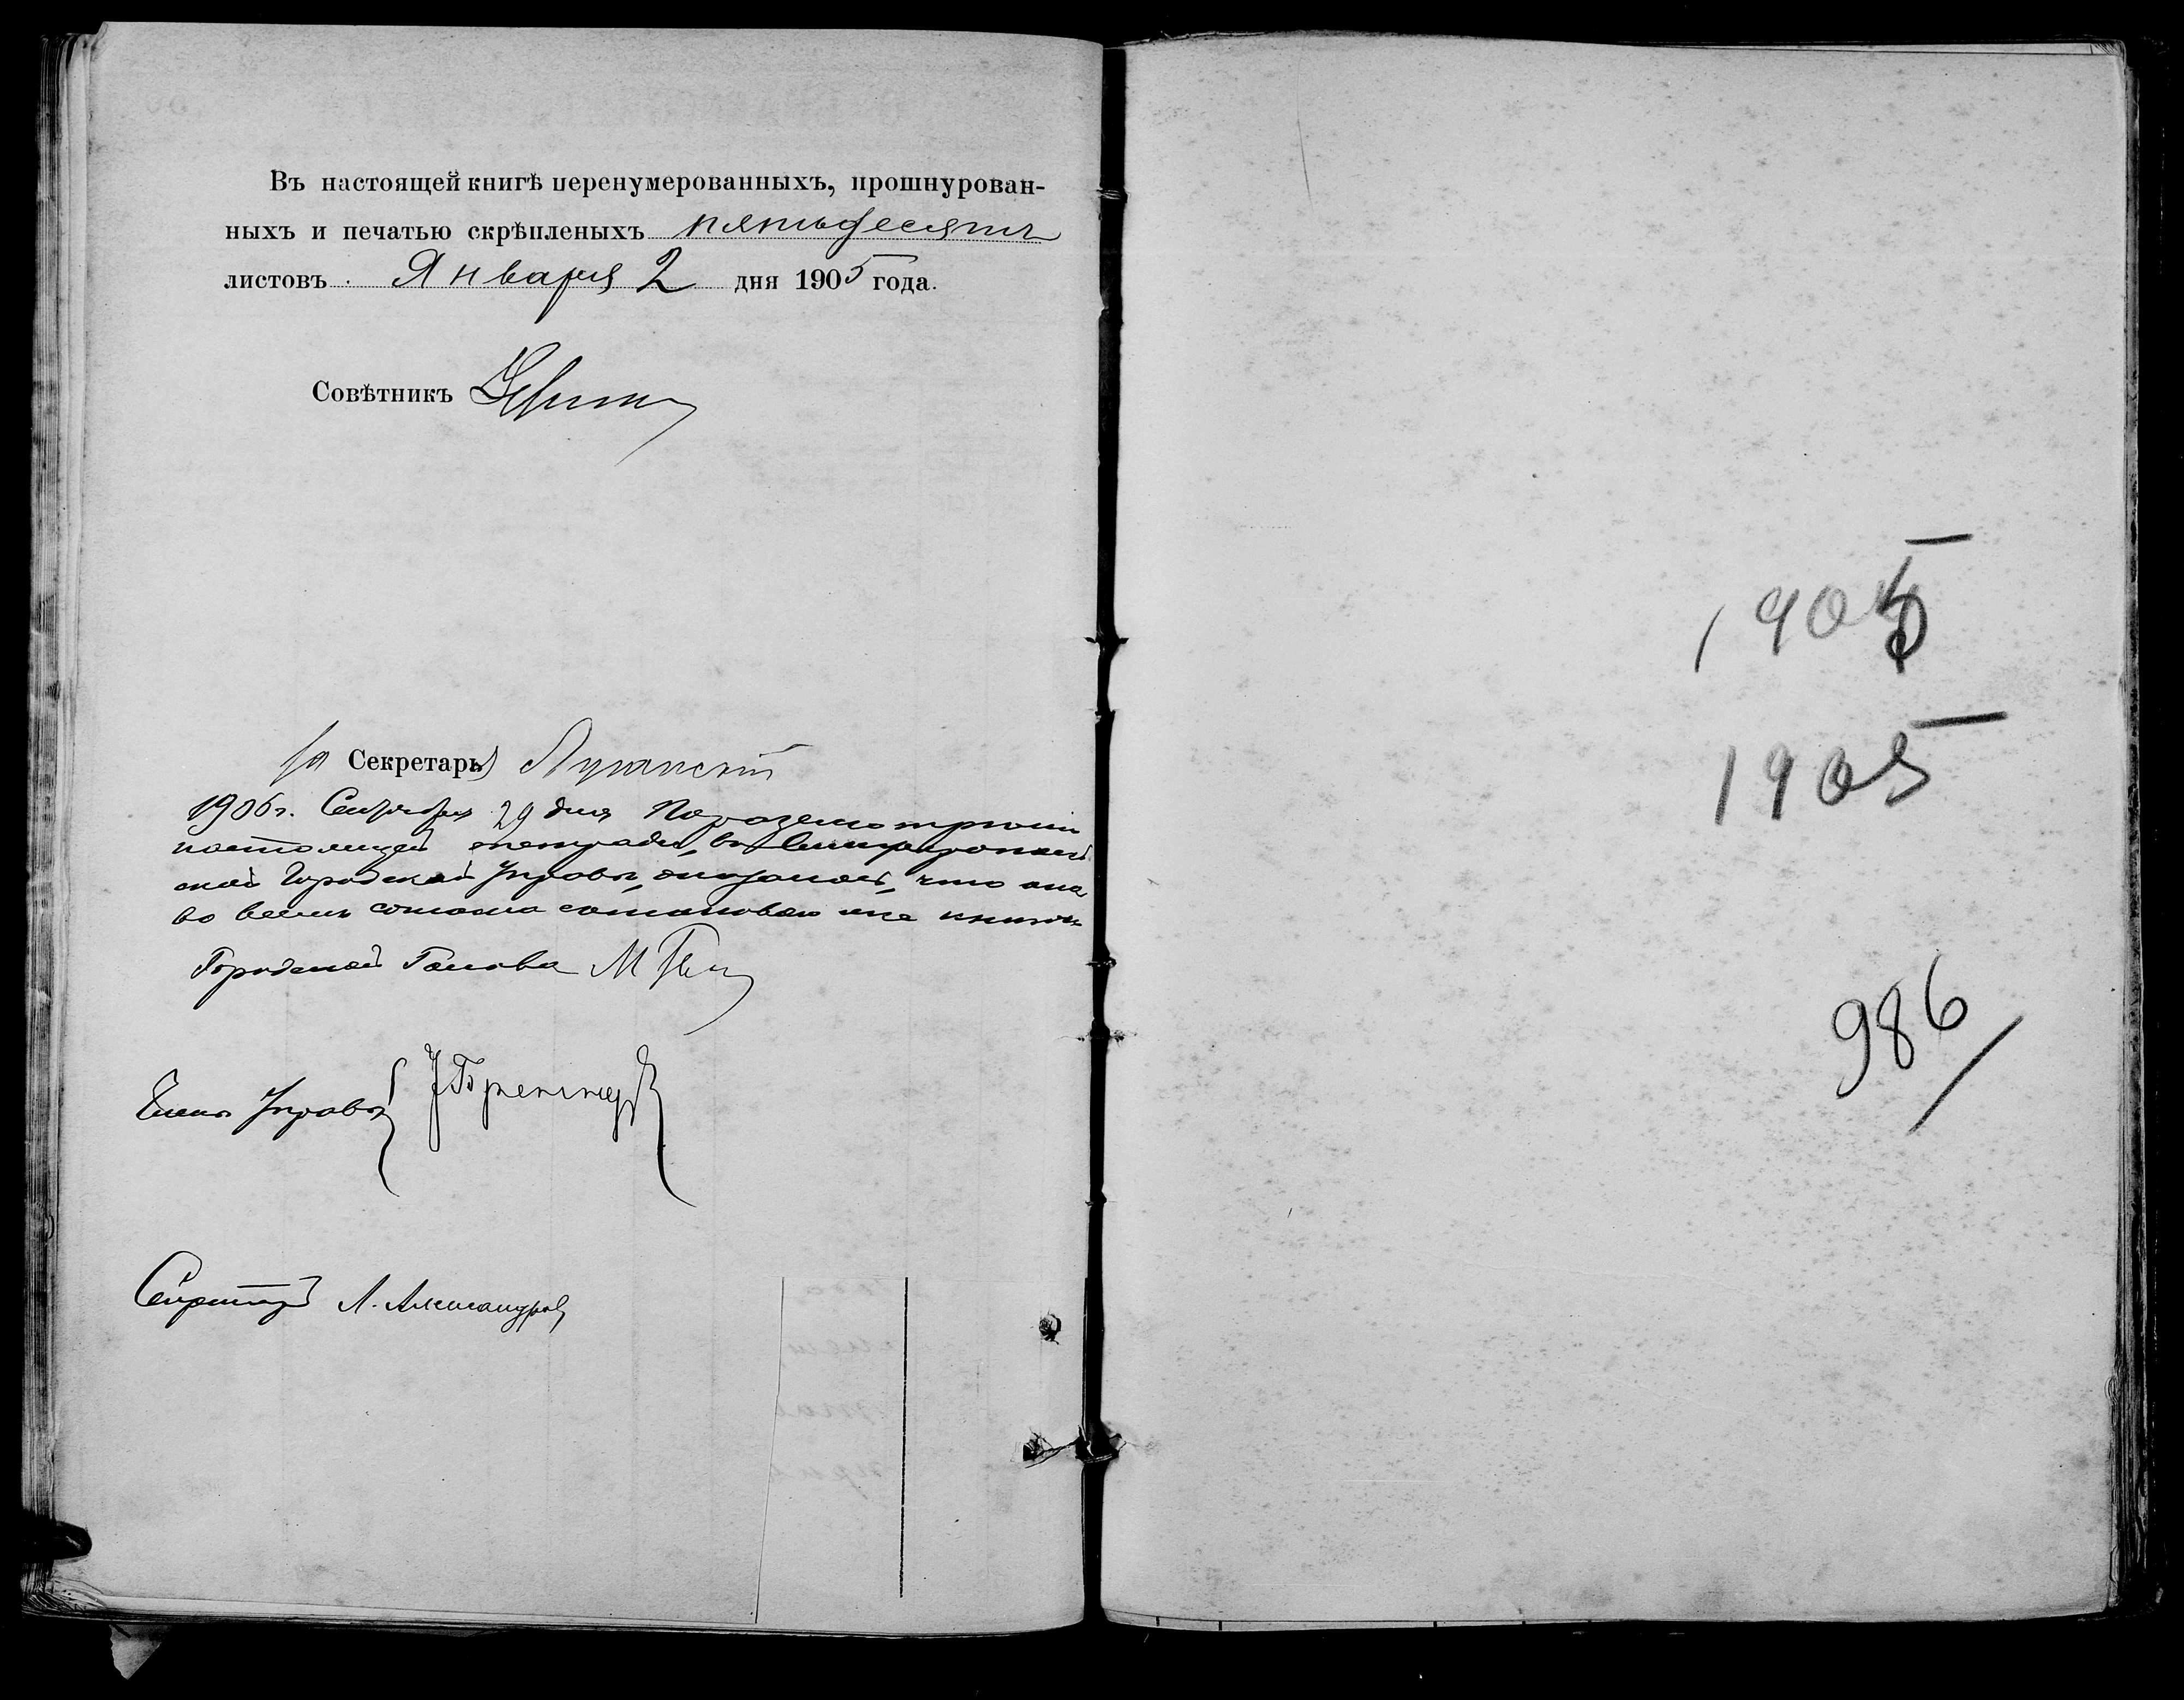 Въ настоящей книгѣ перенумерованныхъ, прошнурован-
ныхъ и печатью скрѣпленыхъ пятьдесятъ
листовъ Января 2 дня 1905 года.
Совѣтникъ
Секретарь
1906 г. Сентября 29 дня По разсмотрении
настоящей тетради, въ Симферополь
ской Городской Управѣ, оказалось, что она
во всемъ согласна съ таковою же книгою
Городской Голова М
Членъ Управы
Секретарь А. Александров
1905
1905
986